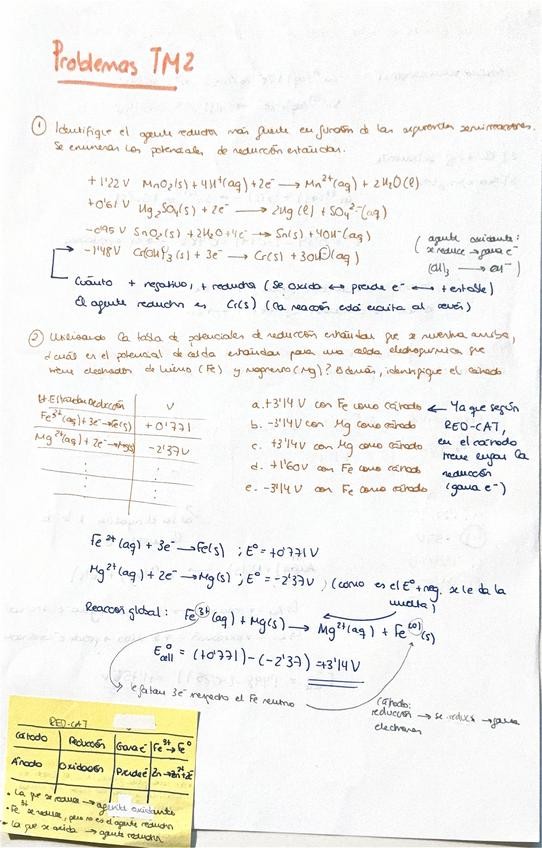 Problemas TM2
① Identifique el agente reductor más fuerte en función de las siguientes semirreacciones.
Se enumeran los potenciales de reducción estándar.
+1'22 V MnO2(s) + 4H+(aq) + 2e- → Mn2+(aq) + 2H2O(l)
+0'61 V Hg2SO4(s) + 2e- → 2Hg(l) + SO4 2-(aq)
-0'95 V SnO2(s) + 2H2O + 4e- → Sn(s) + 4OH-(aq)
-1'48 V Cr(OH)3(s) + 3e- → Cr(s) + 3OH-(aq)
( agente oxidante:
se reduce → gana e-
(OH)3 → OH- )
Cuánto + negativo, + reductor (se oxida ↔ pierde e- ↔ + estable)
El agente reductor es Cr(s) (la reacción está escrita al revés)
② Utilizando la tabla de potenciales de reducción estándar que se muestra arriba,
¿cuál es el potencial de celda estándar para una celda electroquímica que
tiene electrodos de hierro (Fe) y magnesio (Mg)? Además, identifique el cátodo
Pt. Estándar Reducción V
Fe3+(aq) + 3e- → Fe(s) +0'771
Mg2+(aq) + 2e- → Mg(s) -2'37 V
a. +3'14 V con Fe como cátodo ← Ya que según
b. -3'14 V con Mg como cátodo RED-CAT,
c. +3'14 V con Mg como cátodo en el cátodo
d. +1'60 V con Fe como cátodo tiene lugar la
e. -3'14 V con Fe como cátodo reducción
(gana e-)
Fe3+(aq) + 3e- → Fe(s) ; E° = +0'771 V
Mg2+(aq) + 2e- → Mg(s) ; E° = -2'37 V ; (como es el E° + neg. se le da la
vuelta)
Reacción global: Fe3+(aq) + Mg(s) → Mg2+(aq) + Fe(0)(s)
E°cell = (+0'771) - (-2'37) = +3'14 V
le faltan 3e- respecto el Fe neutro
Cátodo:
reducción → se reduce → gana
electrones
RED-CAT
Cátodo Reducción Gana e- Fe3+ → Fe0
Ánodo Oxidación Pierde e- Zn → Zn2+ + 2e-
• La que se reduce → agente oxidante
• Fe3+ se reduce, pero no es el agente reductor
• La que se oxida → agente reductor